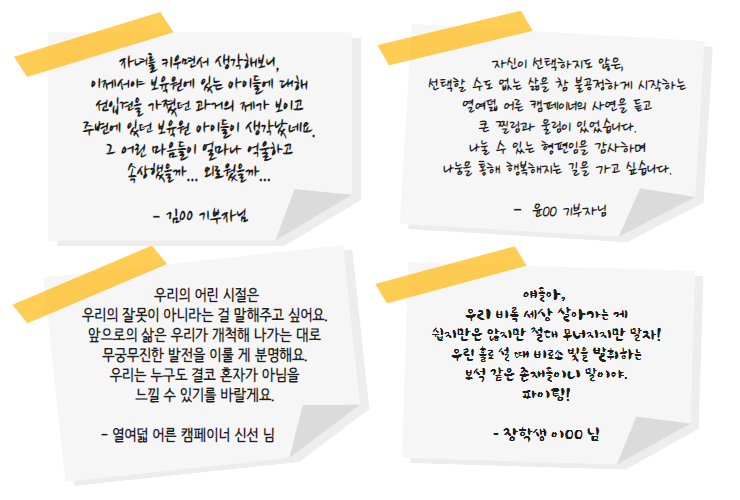 자녀를 키우면서 생각해보니,
이제서야 보육원에 있는 아이들에 대해
선입견을 가졌던 과거의 제가 보이고
주변에 있던 보육원 아이들이 생각났네요.
그 어린 마음들이 얼마나 억울하고
속상했을까... 외로웠을까...
- 김00 기부자님
자신이 선택하지도 않은,
선택할 수도 없는 삶을 참 불공정하게 시작하는
열여덟 어른 캠페이너의 사연을 듣고
큰 찔림과 울림이 있었습니다.
나눌 수 있는 형편임을 감사하며
나눔을 통해 행복해지는 길을 가고 싶습니다.
- 윤00 기부자님
우리의 어린 시절은
우리의 잘못이 아니라는 걸 말해주고 싶어요.
앞으로의 삶은 우리가 개척해 나가는 대로
무궁무진한 발전을 이룰 게 분명해요.
우리는 누구도 결코 혼자가 아님을
느낄 수 있기를 바랄게요.
- 열여덟 어른 캠페이너 신선 님
얘들아,
우리 비록 세상 살아가는 게
쉽지만은 않지만 절대 무너지지만 말자!
우린 홀로 설 때 비로소 빛을 발휘하는
보석 같은 존재들이니 말이야.
파이팅!
- 장학생 이00 님